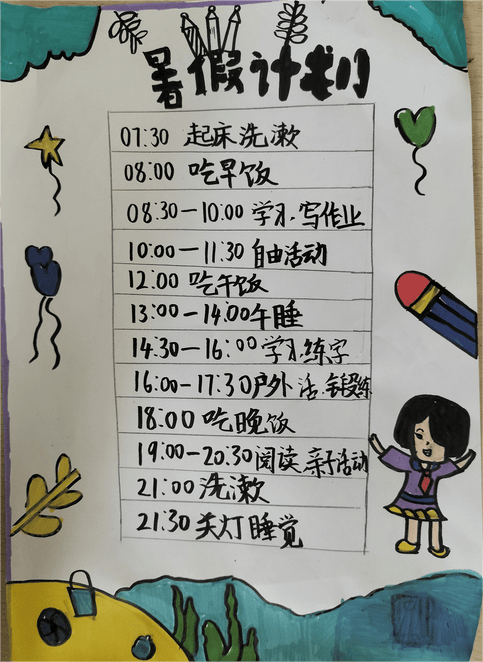 暑假计划
07:30 起床洗漱
08:00 吃早饭
08:30-10:00 学习.写作业
10:00-11:30 自由活动
12:00 吃午饭
13:00-14:00午睡
14:30-16:00学习.练字
16:00-17:30户外活.锻炼
18:00 吃晚饭
19:00-20:30阅读.亲子活动
21:00 洗漱
21:30 关灯睡觉